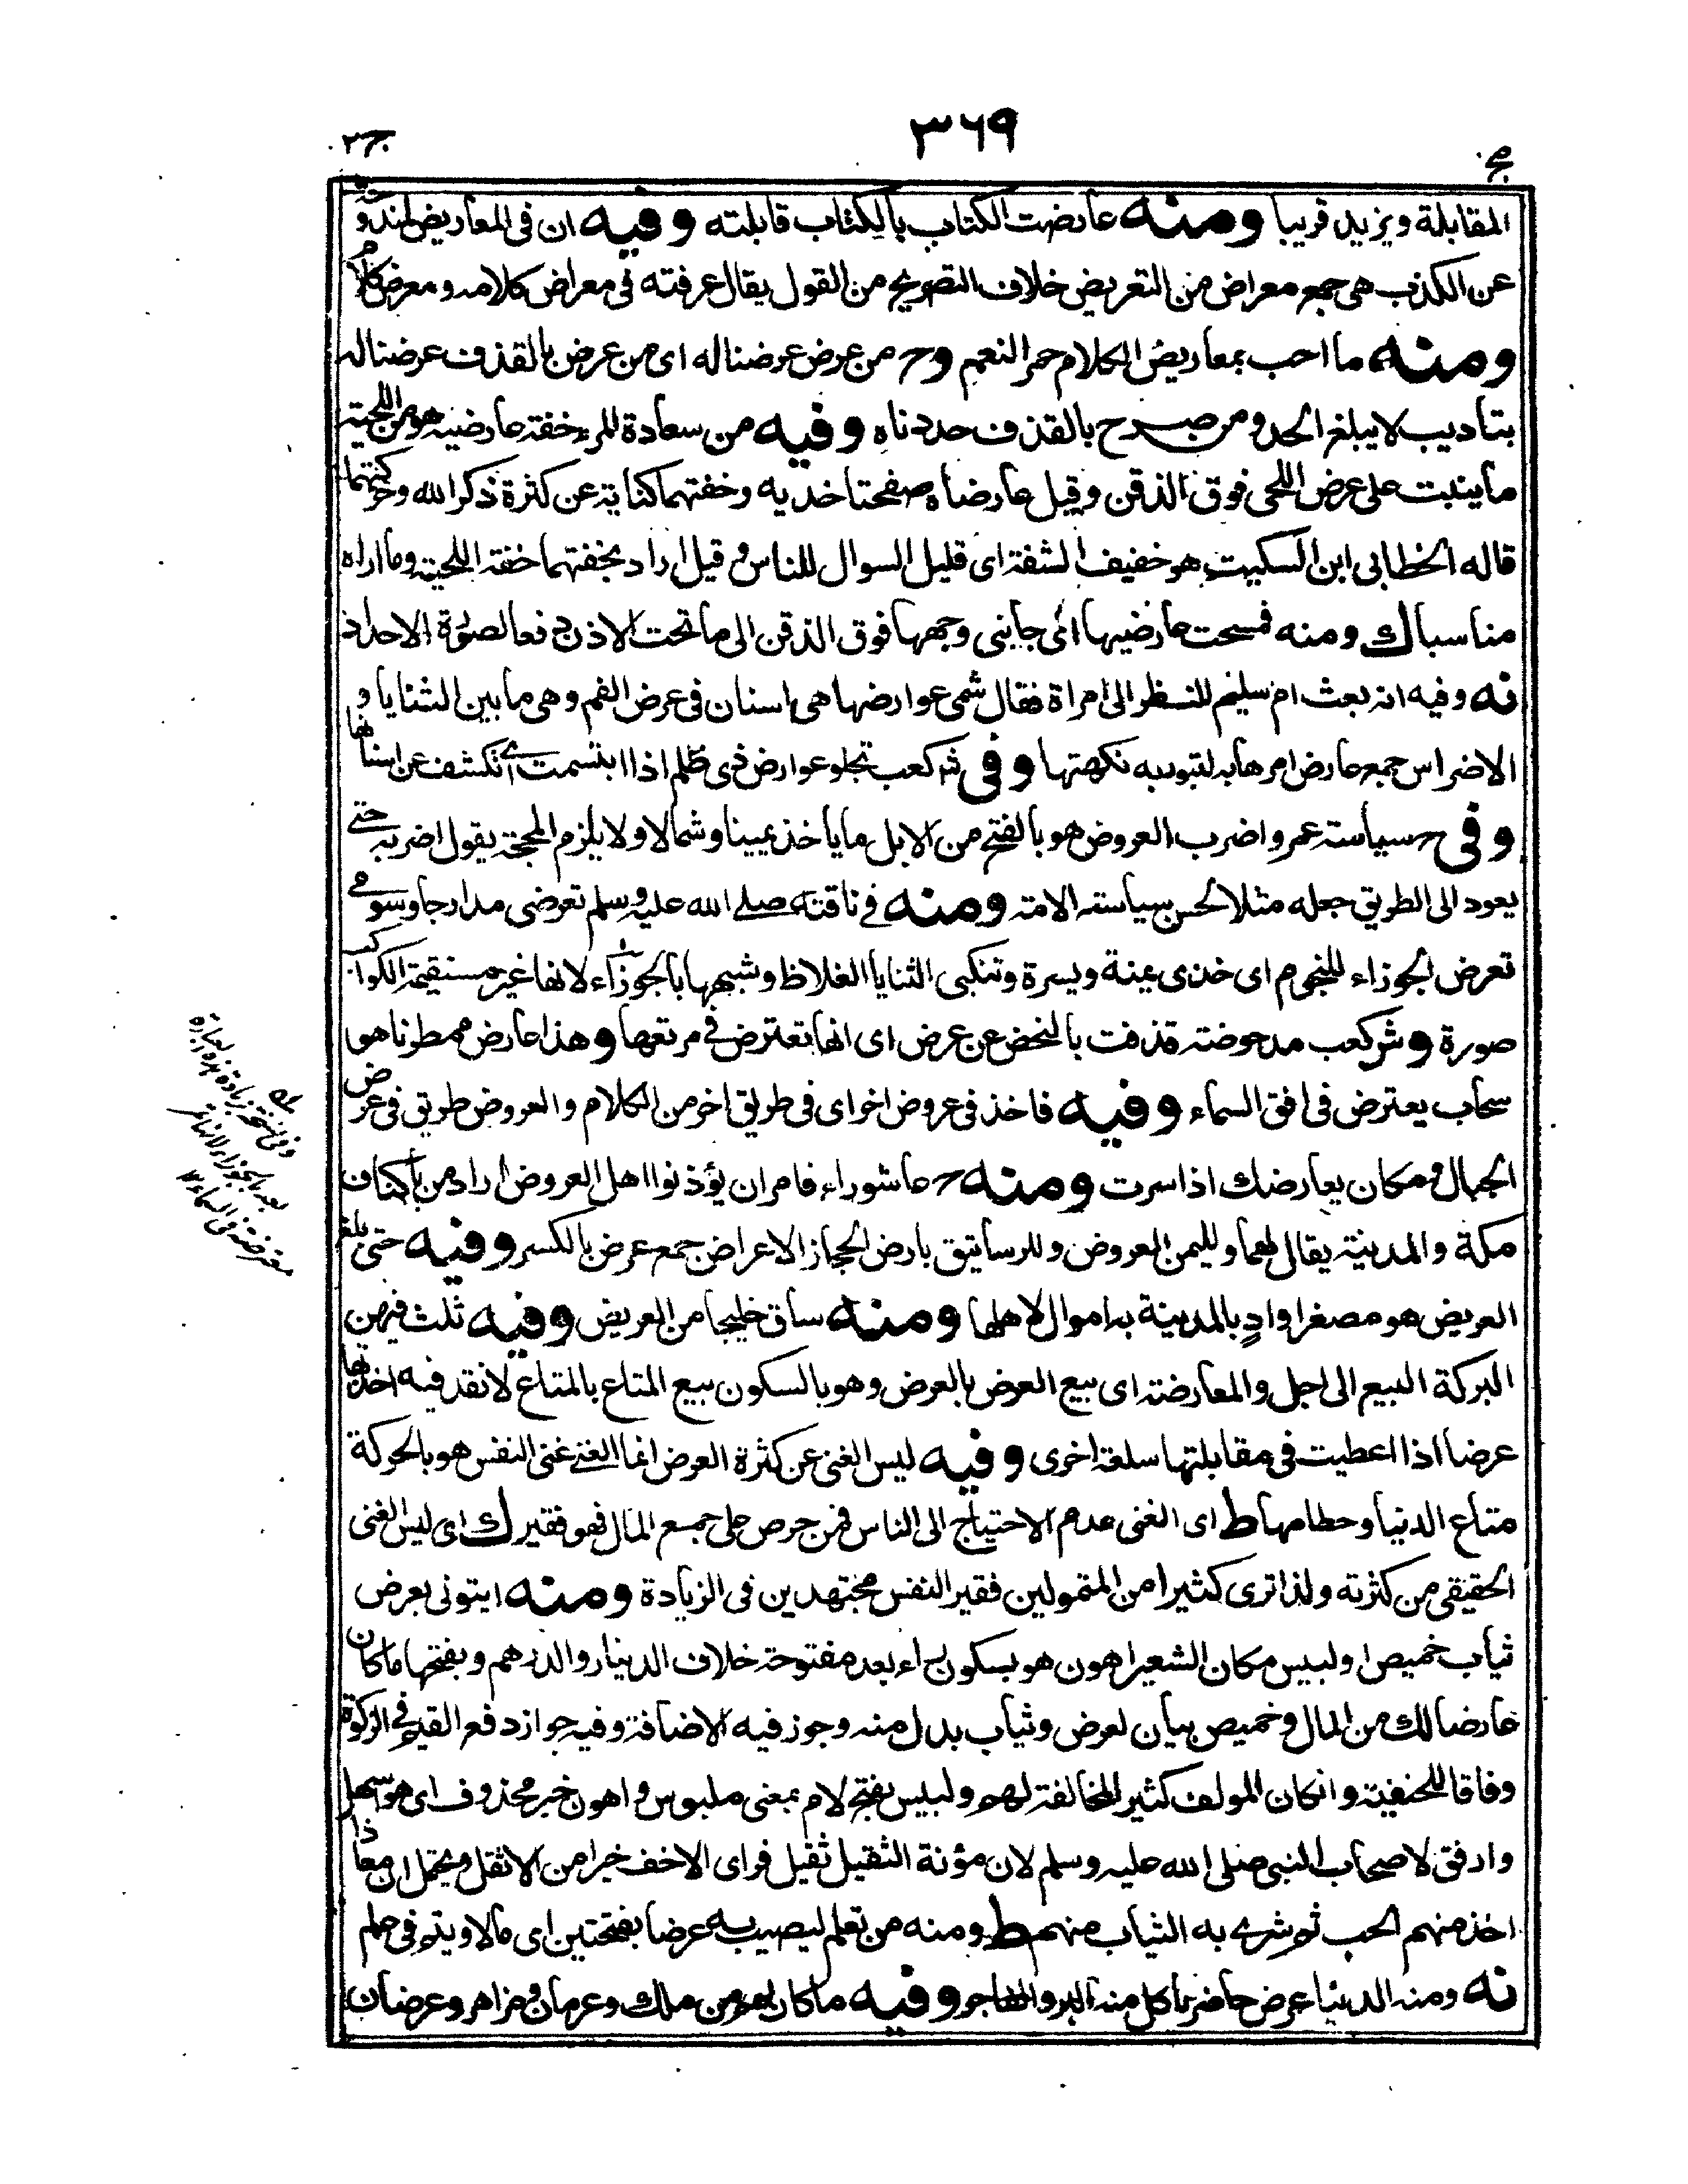 ٣٦٩
ج٢
المقابلة ويزيد قريبا ومنه عارضت الكتاب بالكتاب قابلته وفيه ان فى المعاريض لمندوحة
عن الكذب هى جمع معراض من التعريض خلاف التصريح من القول يقال عرفته فى معراض كلامه ومعرض كلامه
ومنه ما احب بمعاريض الكلام حمر النعم وح من عرض عرضنا له اى من عرض بالقذف عرضنا له
بتاديب لا يبلغ الحد ومن صرح بالقذف حددناه وفيه من سعادة المرء خفة عارضيه هو من اللحية
ما ينبت على عرض اللحى فوق الذقن وقيل عارضاه صفحتا خديه وخفتهما كناية عن كثرة ذكر الله وحركتهما
قاله الخطابى ابن السكيت هو خفيف الشفة اى قليل السوال للناس وقيل اراد بخفتهما خفة اللحية وما اراه
مناسبا ك ومنه فمسحت عارضيها اى جانبى وجهها فوق الذقن الى ما تحت الاذن دفعا لصورة الاحداد
نه وفيه انه بعث ام سليم للنظر الى امراة فقال شمى عوارضها هى اسنان فى عرض الفم وهى ما بين الثنايا و
الاضراس جمع عارض امرها به لتبور به نكهتها وفى ش كعب تجلو عوارض ذى ظلم اذا ابتسمت اى تكشف عن اسنانها
وفى ح سياسة عمر واضرب العروض هو بالفتح من الابل ما ياخذ يمينا وشمالا ولا يلزم المحجة يقول اضربه حتى
يعود الى الطريق جعله مثلا لحسن سياسته الامة ومنه فى ناقته صلى الله عليه وسلم تعرضى مدارجا وسومى
تعرض الجوزاء للنجوم اى خذى يمنة ويسرة وتنكبى الثنايا الغلاظ وشبهها بالجوزاء لانها غير مستقيمة الكواكب
صورة وش كعب مدخوسة قذفت بالنحض عن عرض اى انها تعترض فى مرتعها وهذا عارض ممطرنا هو
سحاب يعترض فى افق السماء وفيه فاخذ فى عروض اخر اى فى طريق اخر من الكلام والعروض طريق فى عرض
الجبال ومكان يعارضك اذا سرت ومنه ح عاشوراء فامر ان يؤذنوا اهل العروض اراد من باكناف
مكة والمدينة يقال لهما ولليمن العروض وللرساتيق بارض الحجاز الاعراض جمع عرض بالكسر وفيه حتى بلغ
العريض هو مصغرا وادٍ بالمدينة به اموال لاهلها ومنه ساق خليجا من العريض وفيه ثلث فيهن
البركة البيع الى اجل والمعارضة اى بيع العرض بالعرض وهو بالسكون بيع المتاع بالمتاع لا نقد فيه اخذتها
عرضا اذا اعطيت فى مقابلتها سلعة اخرى وفيه ليس الغنى عن كثرة العرض انما الغنى غنى النفس هو بالحركة
متاع الدنيا وحطامها ط اى الغنى عدم الاحتياج الى الناس فمن حرص على جمع المال فهو فقير ك اى ليس الغنى
الحقيقى من كثرته ولذا ترى كثيرا من المتمولين فقير النفس مجتهدين فى الزيادة ومنه ايتونى بعرض
ثياب خميص او لبيس مكان الشعير اهون هو بسكون راء بعد مفتوحة خلاف الدينار والدرهم وبفتحها ما كان
عارضا لك من المال وخميص بيان لعرض وثياب بدل منه وجوز فيه الاضافة وفيه جواز دفع القيم فى الزكوة
وفاقا للحنفية وان كان المولف كثير المخالفة لهم ولبيس بفتح لام بمعنى ملبوس واهون خبر محذوف اى هو اسهل
وارفق لاصحاب النبى صلى الله عليه وسلم لان مؤنة الثقيل ثقيل فراى الاخف خيرا من الاثقل ويحتمل ان معاذا
اخذ منهم الحب ثم شرى به الثياب منهم ط ومنه من تعلم ليصيب به عرضا بفتحتين اى مالا ويتم فى علم
نه ومنه الدنيا عرض حاضر ياكل منه البر والفاجر وفيه ما كان لهم من ملك وعرمان ومزاهر وعرضان
وفى نسخة زيادة هذه العبارة
بعد بالجوزاء لانها تمر
معترضة فى السماء ١٢